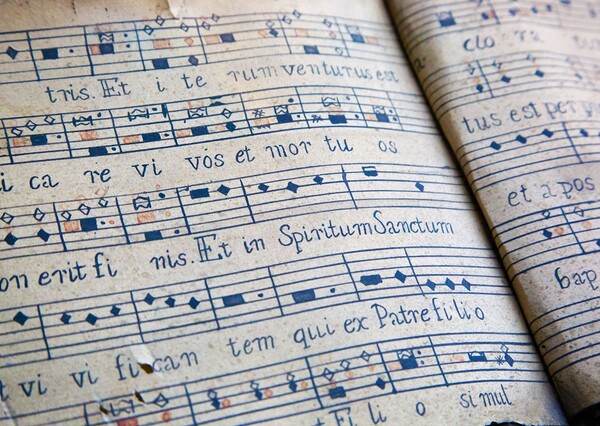 tris. Et i te rum venturus est
i ca re vi vos et mor tu os
on erit fi nis. Et in Spiritum Sanctum
t vi vi fi can tem qui ex Patre fi li o
t Fi li o si mul
clo ra
tus est per
et a pos
bap